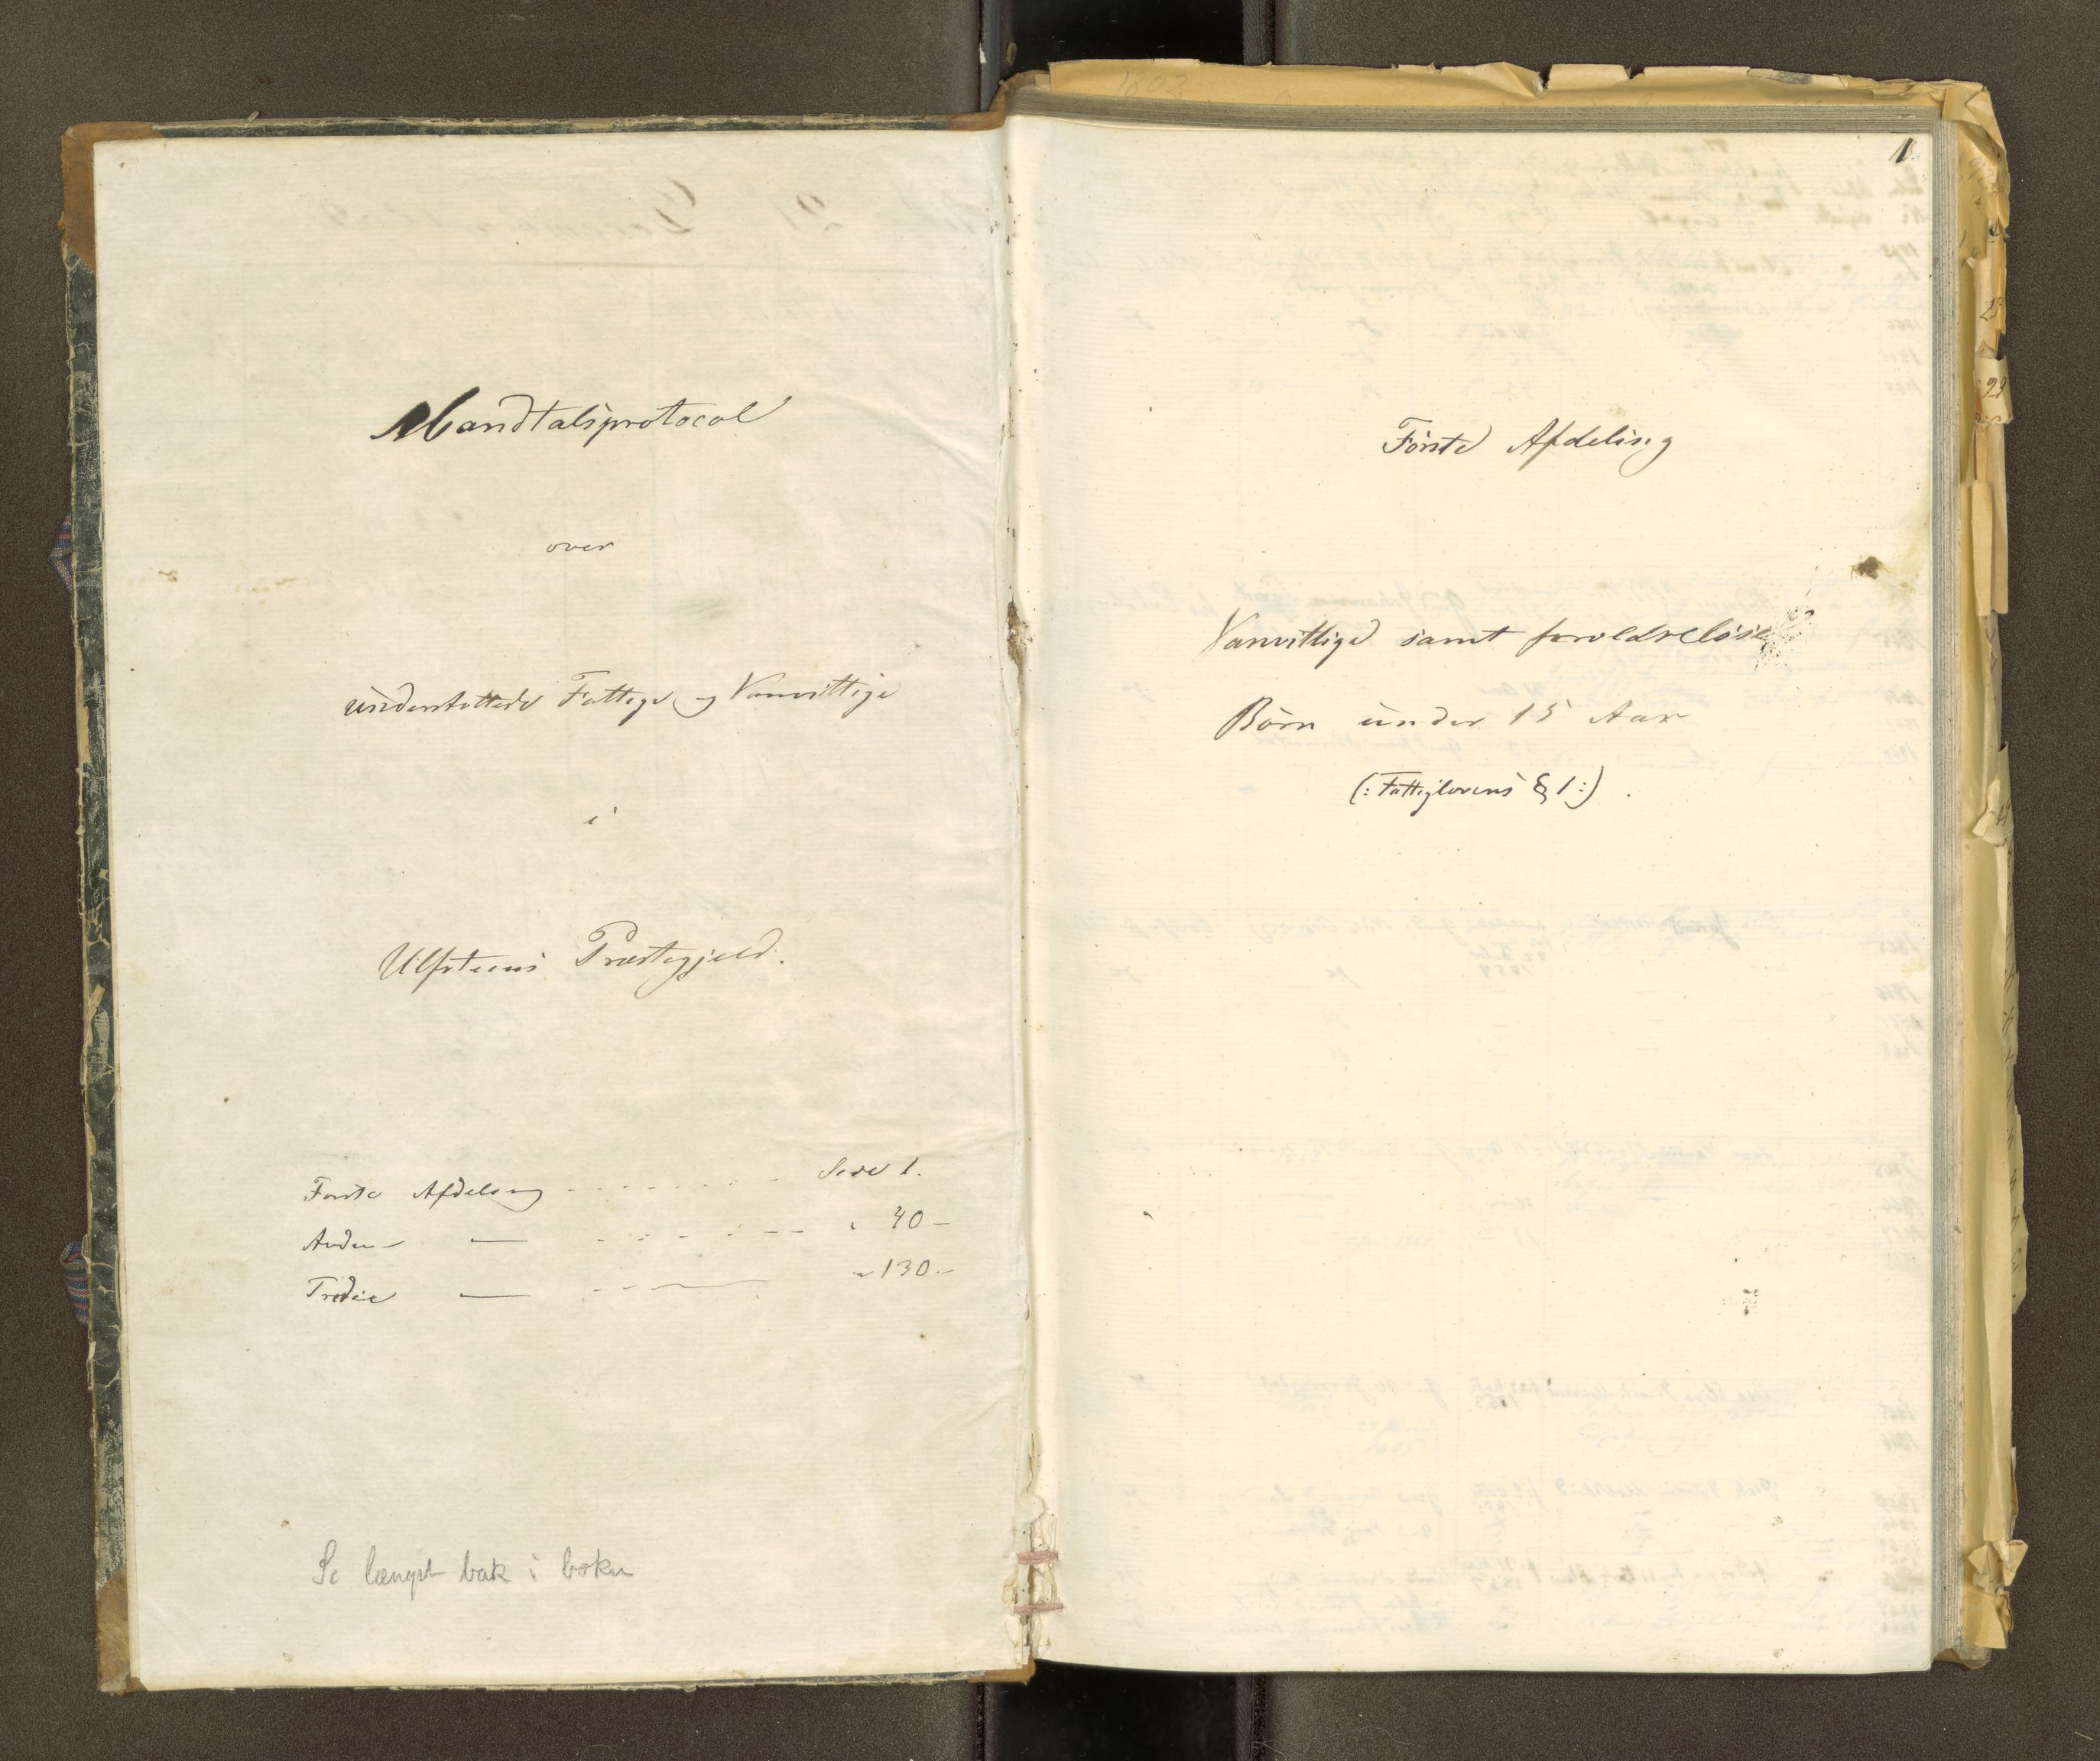 Mandtalsprotocol
over
understøttede Fattige og Vanvittige
i
Ulfsteens Præstegjeld.
Første Afdeling - - - - - - - - Side 1.
Anden — - - - - - - — " 40 —
Tredie — - - - — " 130 —
Se længst bak i boken
1
Første Afdeling
Vanvittige samt forældreløse
Børn under 15 Aar
(: Fattiglovens § 1 :) .